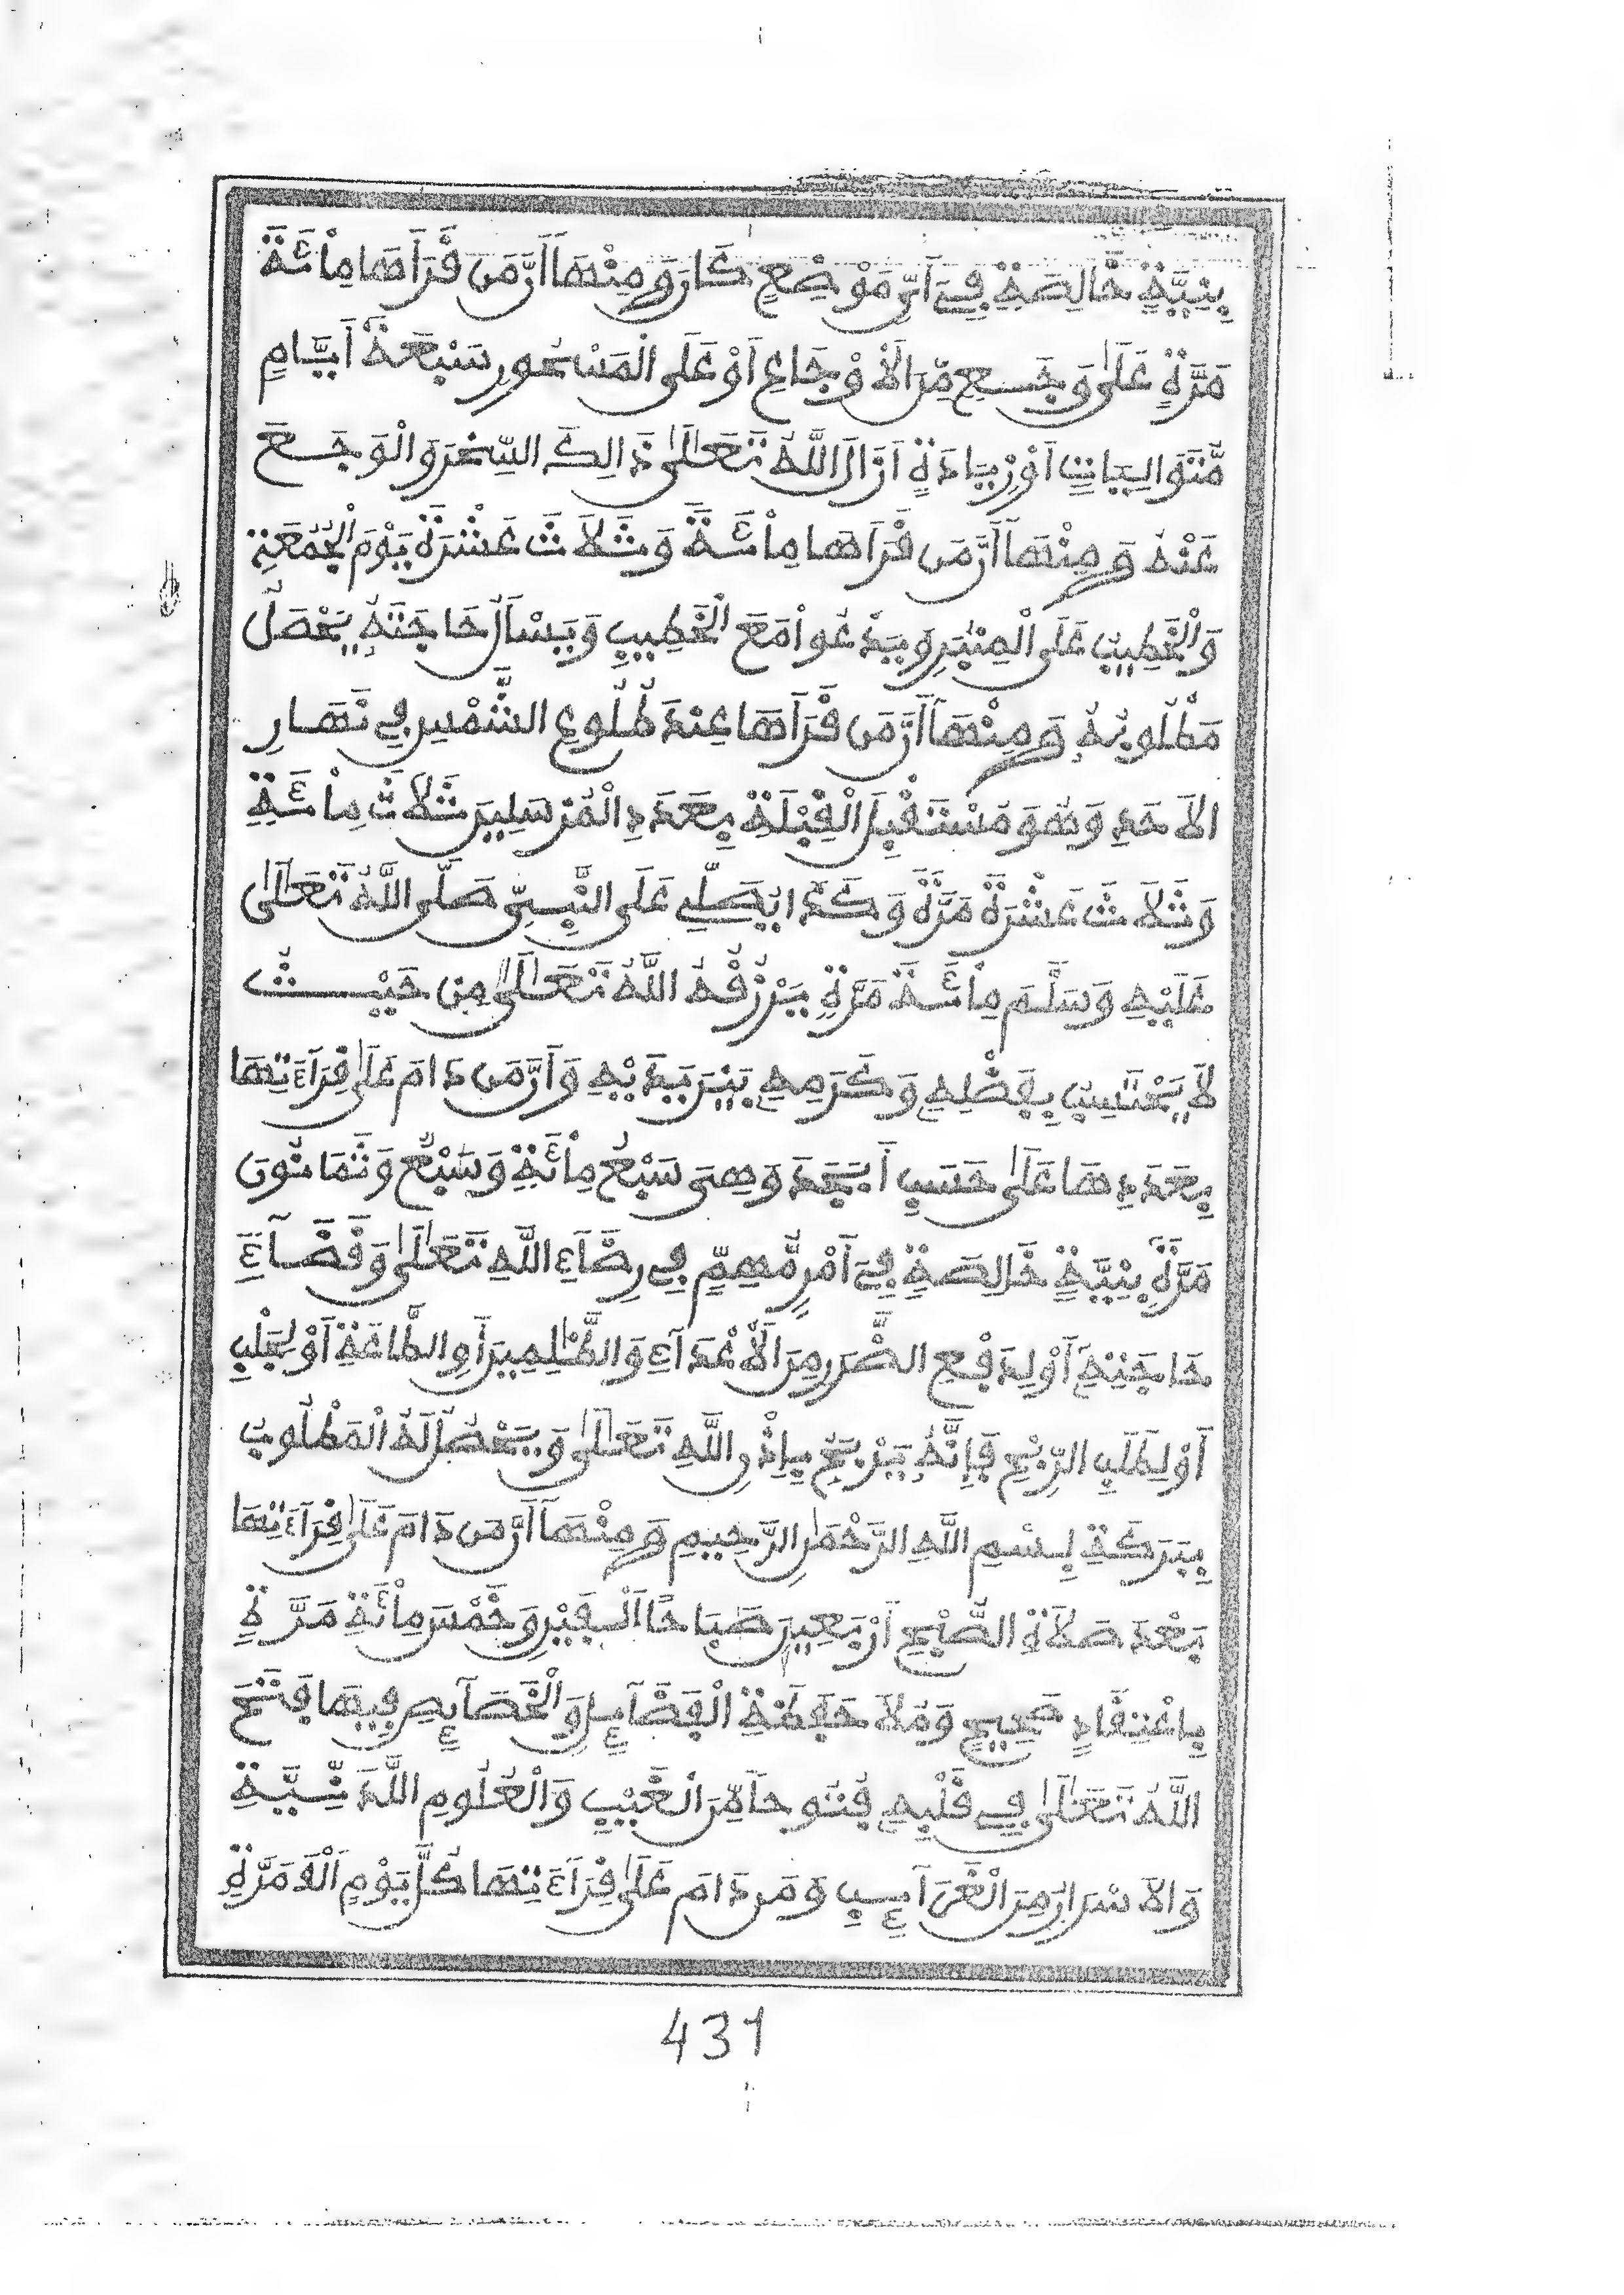 بِنِيَّةٍ خَالِصَةٍ فِي أَيِّ مَوْضِعٍ كَانَ وَمِنْهَا أَنَّ مَن قَرَأَهَا مِائَةَ
مَرَّةٍ عَلَى وَجَعٍ مِّنَ الْأَوْجَاعِ أَوْ عَلَى الْمَسْحُورِ سَبْعَةَ أَيَّامٍ
مُّتَوَالِيَاتٍ أَوْ زِيَادَةٍ أَزَالَ اللَّهُ تَعَالَى ذَالِكَ السِّحْرَ وَالْوَجَعَ
عَنْهُ وَمِنْهَا أَنَّ مَن قَرَأَهَا مِائَةً وَثَلَاثَ عَشْرَةَ يَوْمَ الْجُمُعَةِ
وَالْخَطِيبُ عَلَى الْمِنْبَرِ وَيَدْعُوا مَعَ الْخَطِيبِ وَيَسْأَلُ حَاجَتَهُ يَحْصُلُ
مَطْلُوبُهُ وَمِنْهَا أَنَّ مَن قَرَأَهَا عِنْدَ طُلُوعِ الشَّمْسِ فِي نَهَارِ
الْأَحَدِ وَهُوَ مُسْتَقْبِلَ الْقِبْلَةِ بِعَدَدِ الْمُرْسَلِينَ ثَلَاثَ مِائَةِ
وَثَلَاثَ عَشْرَةَ مَرَّةً وَكَذَا يُصَلِّي عَلَى النَّبِيِّ صَلَّى اللَّهُ تَعَالَى
عَلَيْهِ وَسَلَّمَ مِائَةَ مَرَّةٍ يَرْزُقْهُ اللَّهُ تَعَالَى مِنْ حَيْثُ
لَا يَحْتَسِبُ بِفَضْلِهِ وَكَرَمِهِ بَيْنَ يَدَيْهِ وَأَنَّ مَن دَامَ عَلَى قِرَاءَتِهَا
بِعَدَدِهَا عَلَى حَسَبِ أَبْجَدَ وَهِيَ سَبْعُ مِائَةِ وَسَبْعٌ وَثَمَانُونَ
مَرَّةً بِنِيَّةٍ خَالِصَةٍ فِي أَمْرٍ مُّهِمٍّ فِي رِضَاءِ اللَّهِ تَعَالَى وَقَضَاءِ
حَاجَتِهِ أَوْ لِدَفْعِ الضَّرَرِ مِنَ الْأَعْدَاءِ وَالظَّالِمِينَ أَوِ الطَّاعَةِ أَوْ لِجَلْبِ
أَوْ لِطَلَبِ الرِّبْحِ فَإِنَّهُ يَرْبَحُ بِإِذْنِ اللَّهِ تَعَالَى وَيَحْصُلُ لَهُ الْمَطْلُوبُ
بِبَرَكَةِ بِسْمِ اللَّهِ الرَّحْمَنِ الرَّحِيمِ وَمِنْهَا أَنَّ مَن دَامَ عَلَى قِرَاءَتِهَا
بَعْدَ صَلَاةِ الصُّبْحِ أَرْبَعِينَ صَبَاحًا أَلْفَيْنِ وَخَمْسَ مِائَةِ مَرَّةٍ
بِاعْتِقَادٍ صَحِيحٍ وَمُلَاحَظَةِ الْفَضَائِلِ وَالْخَصَائِصِ فِيهَا فَتَحَ
اللَّهُ تَعَالَى فِي قَلْبِهِ فُتُوحًا مِّنَ الْغَيْبِ وَالْعُلُومِ اللَّدُنِّيَّةِ
وَالْأَسْرَارِ مِنَ الْغَرَائِبِ وَمَن دَامَ عَلَى قِرَاءَتِهَا كُلَّ يَوْمٍ أَلْفَ مَرَّةٍ
431